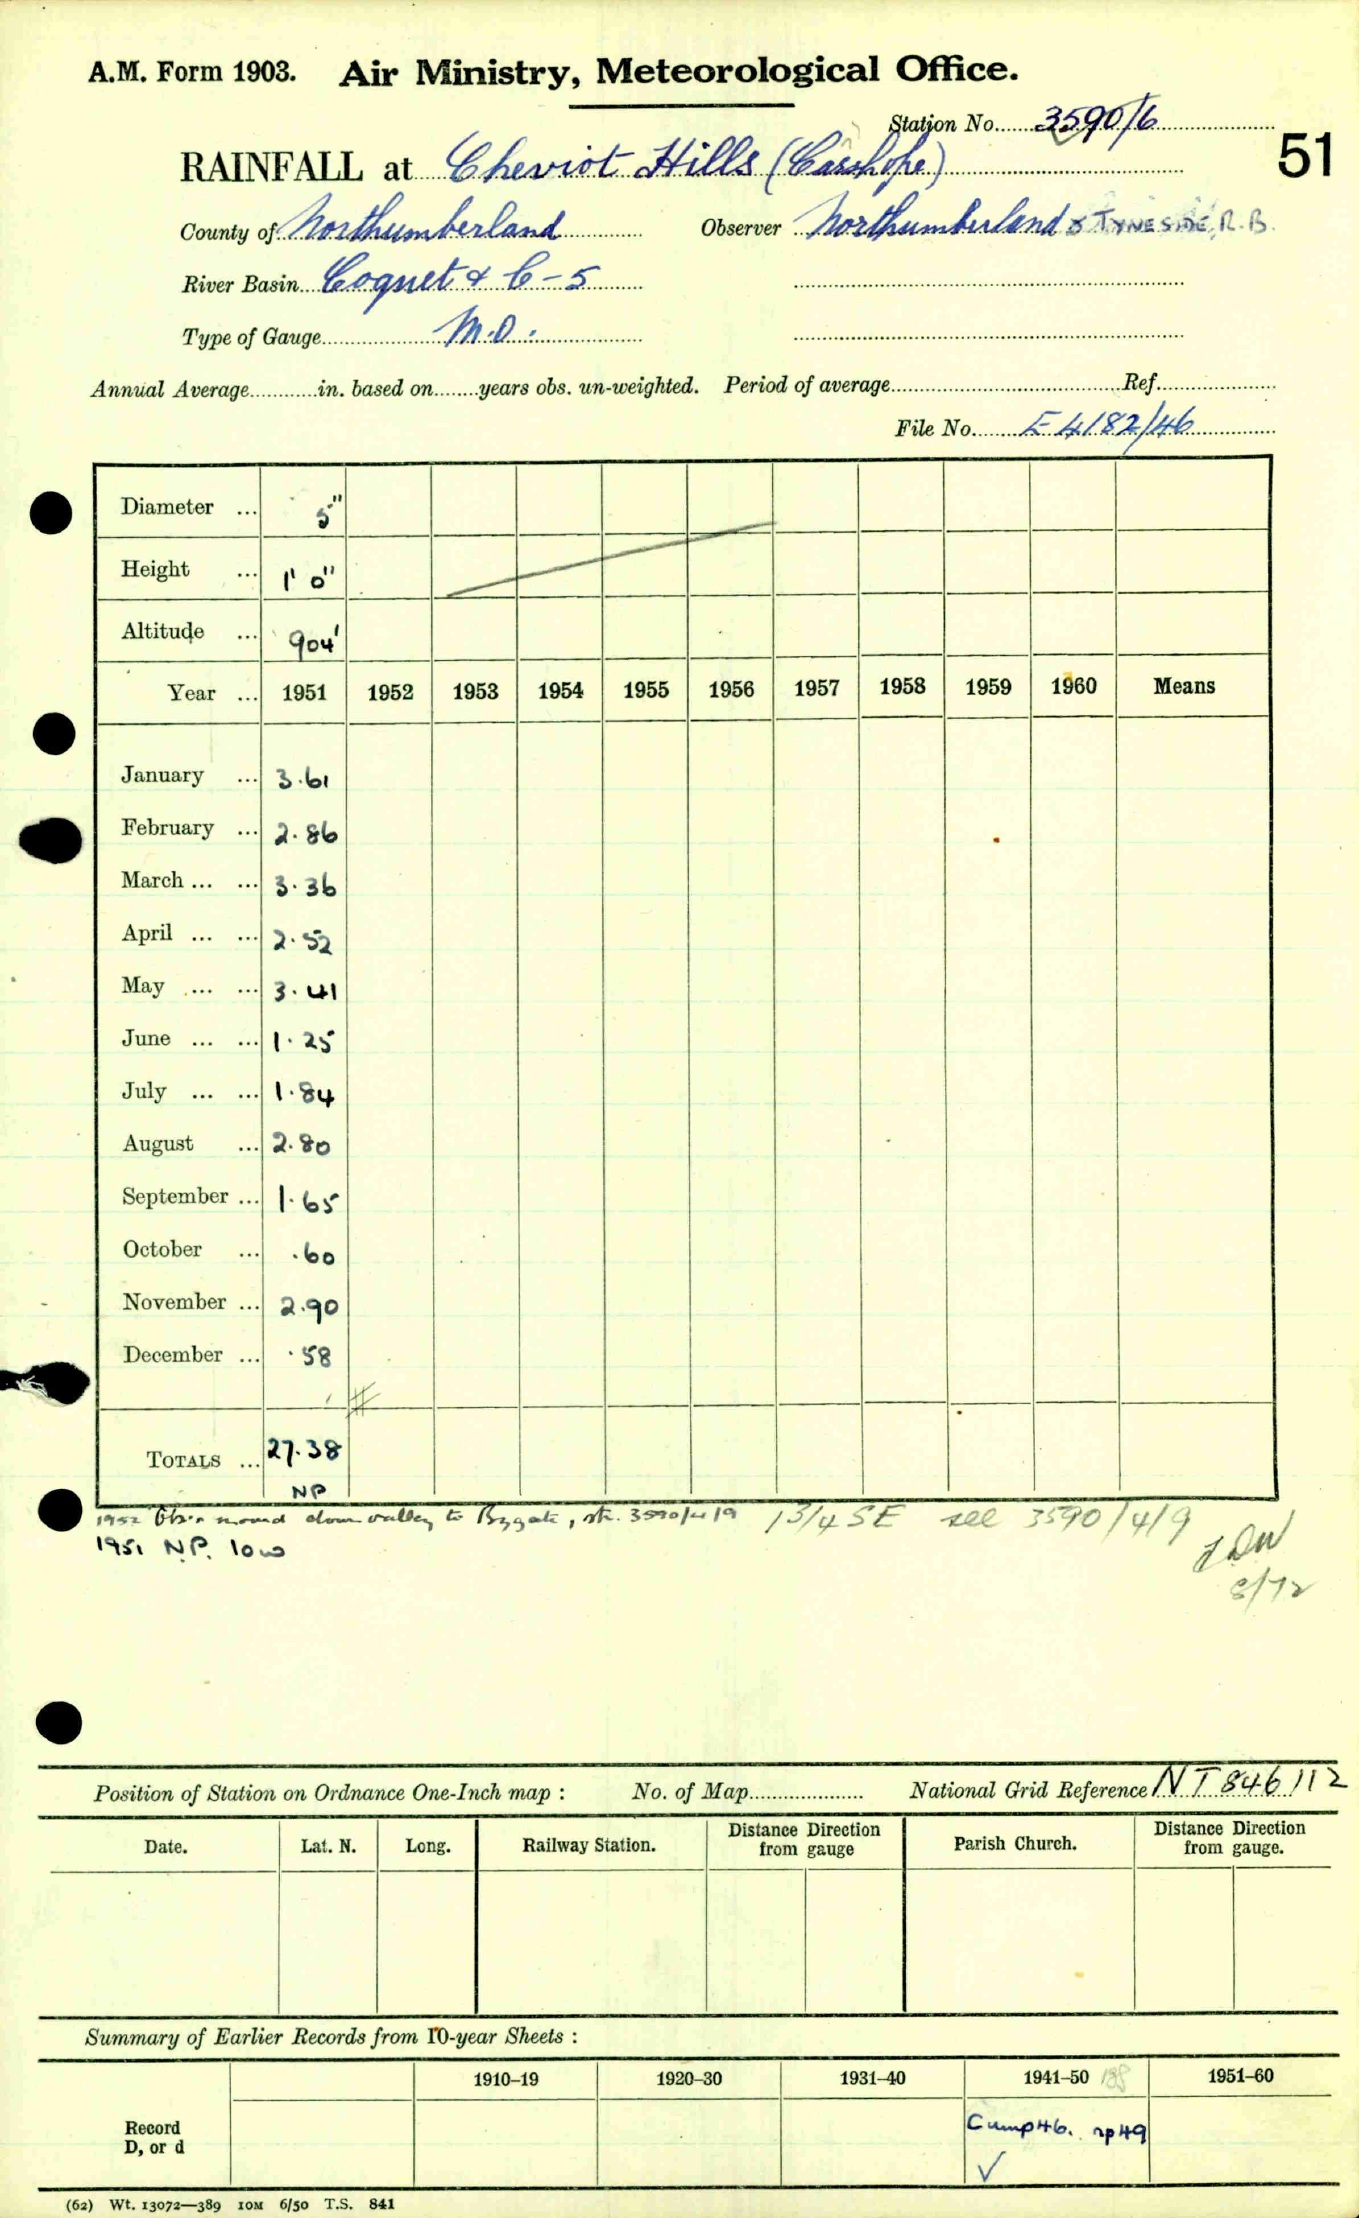 A.M. Form 1903. Air Ministry, Meteorological Office.
Station No. 3590/6
51
RAINFALL at Cheviot Hills (Carshope)
County of Northumberland Observer Northumberland & TYNESIDE R.B.
River Basin Coquet & C-5
Type of Gauge M.O.
Annual Average in. based on years obs. un-weighted. Period of average Ref.
File No. E 4182/46
Diameter ... 5"
Height ... 1' 0"
Altitude ... 904'
Year ... 1951 1952 1953 1954 1955 1956 1957 1958 1959 1960 Means
January ... 3.61
February ... 2.86
March ... ... 3.36
April ... ... 2.52
May ... ... 3.41
June ... ... 1.25
July ... ... 1.84
August ... 2.80
September ... 1.65
October ... .60
November ... 2.90
December ... .58
TOTALS ... 27.38
NP
1952 Obsr moved down valley to Bygate, stn. 3590/4/9 1 3/4 SE see 3590/4/9
1951 N.P. low
8/72
Position of Station on Ordnance One-Inch map : No. of Map National Grid Reference NT 846112
Date. Lat. N. Long. Railway Station. Distance from Direction gauge Parish Church. Distance from Direction gauge.
Summary of Earlier Records from 10-year Sheets :
1910–19 1920–30 1931–40 1941–50 188 1951–60
Record
D, or d
Cump46. np49
(62) Wt. 13072—389 10M 6/50 T.S. 841